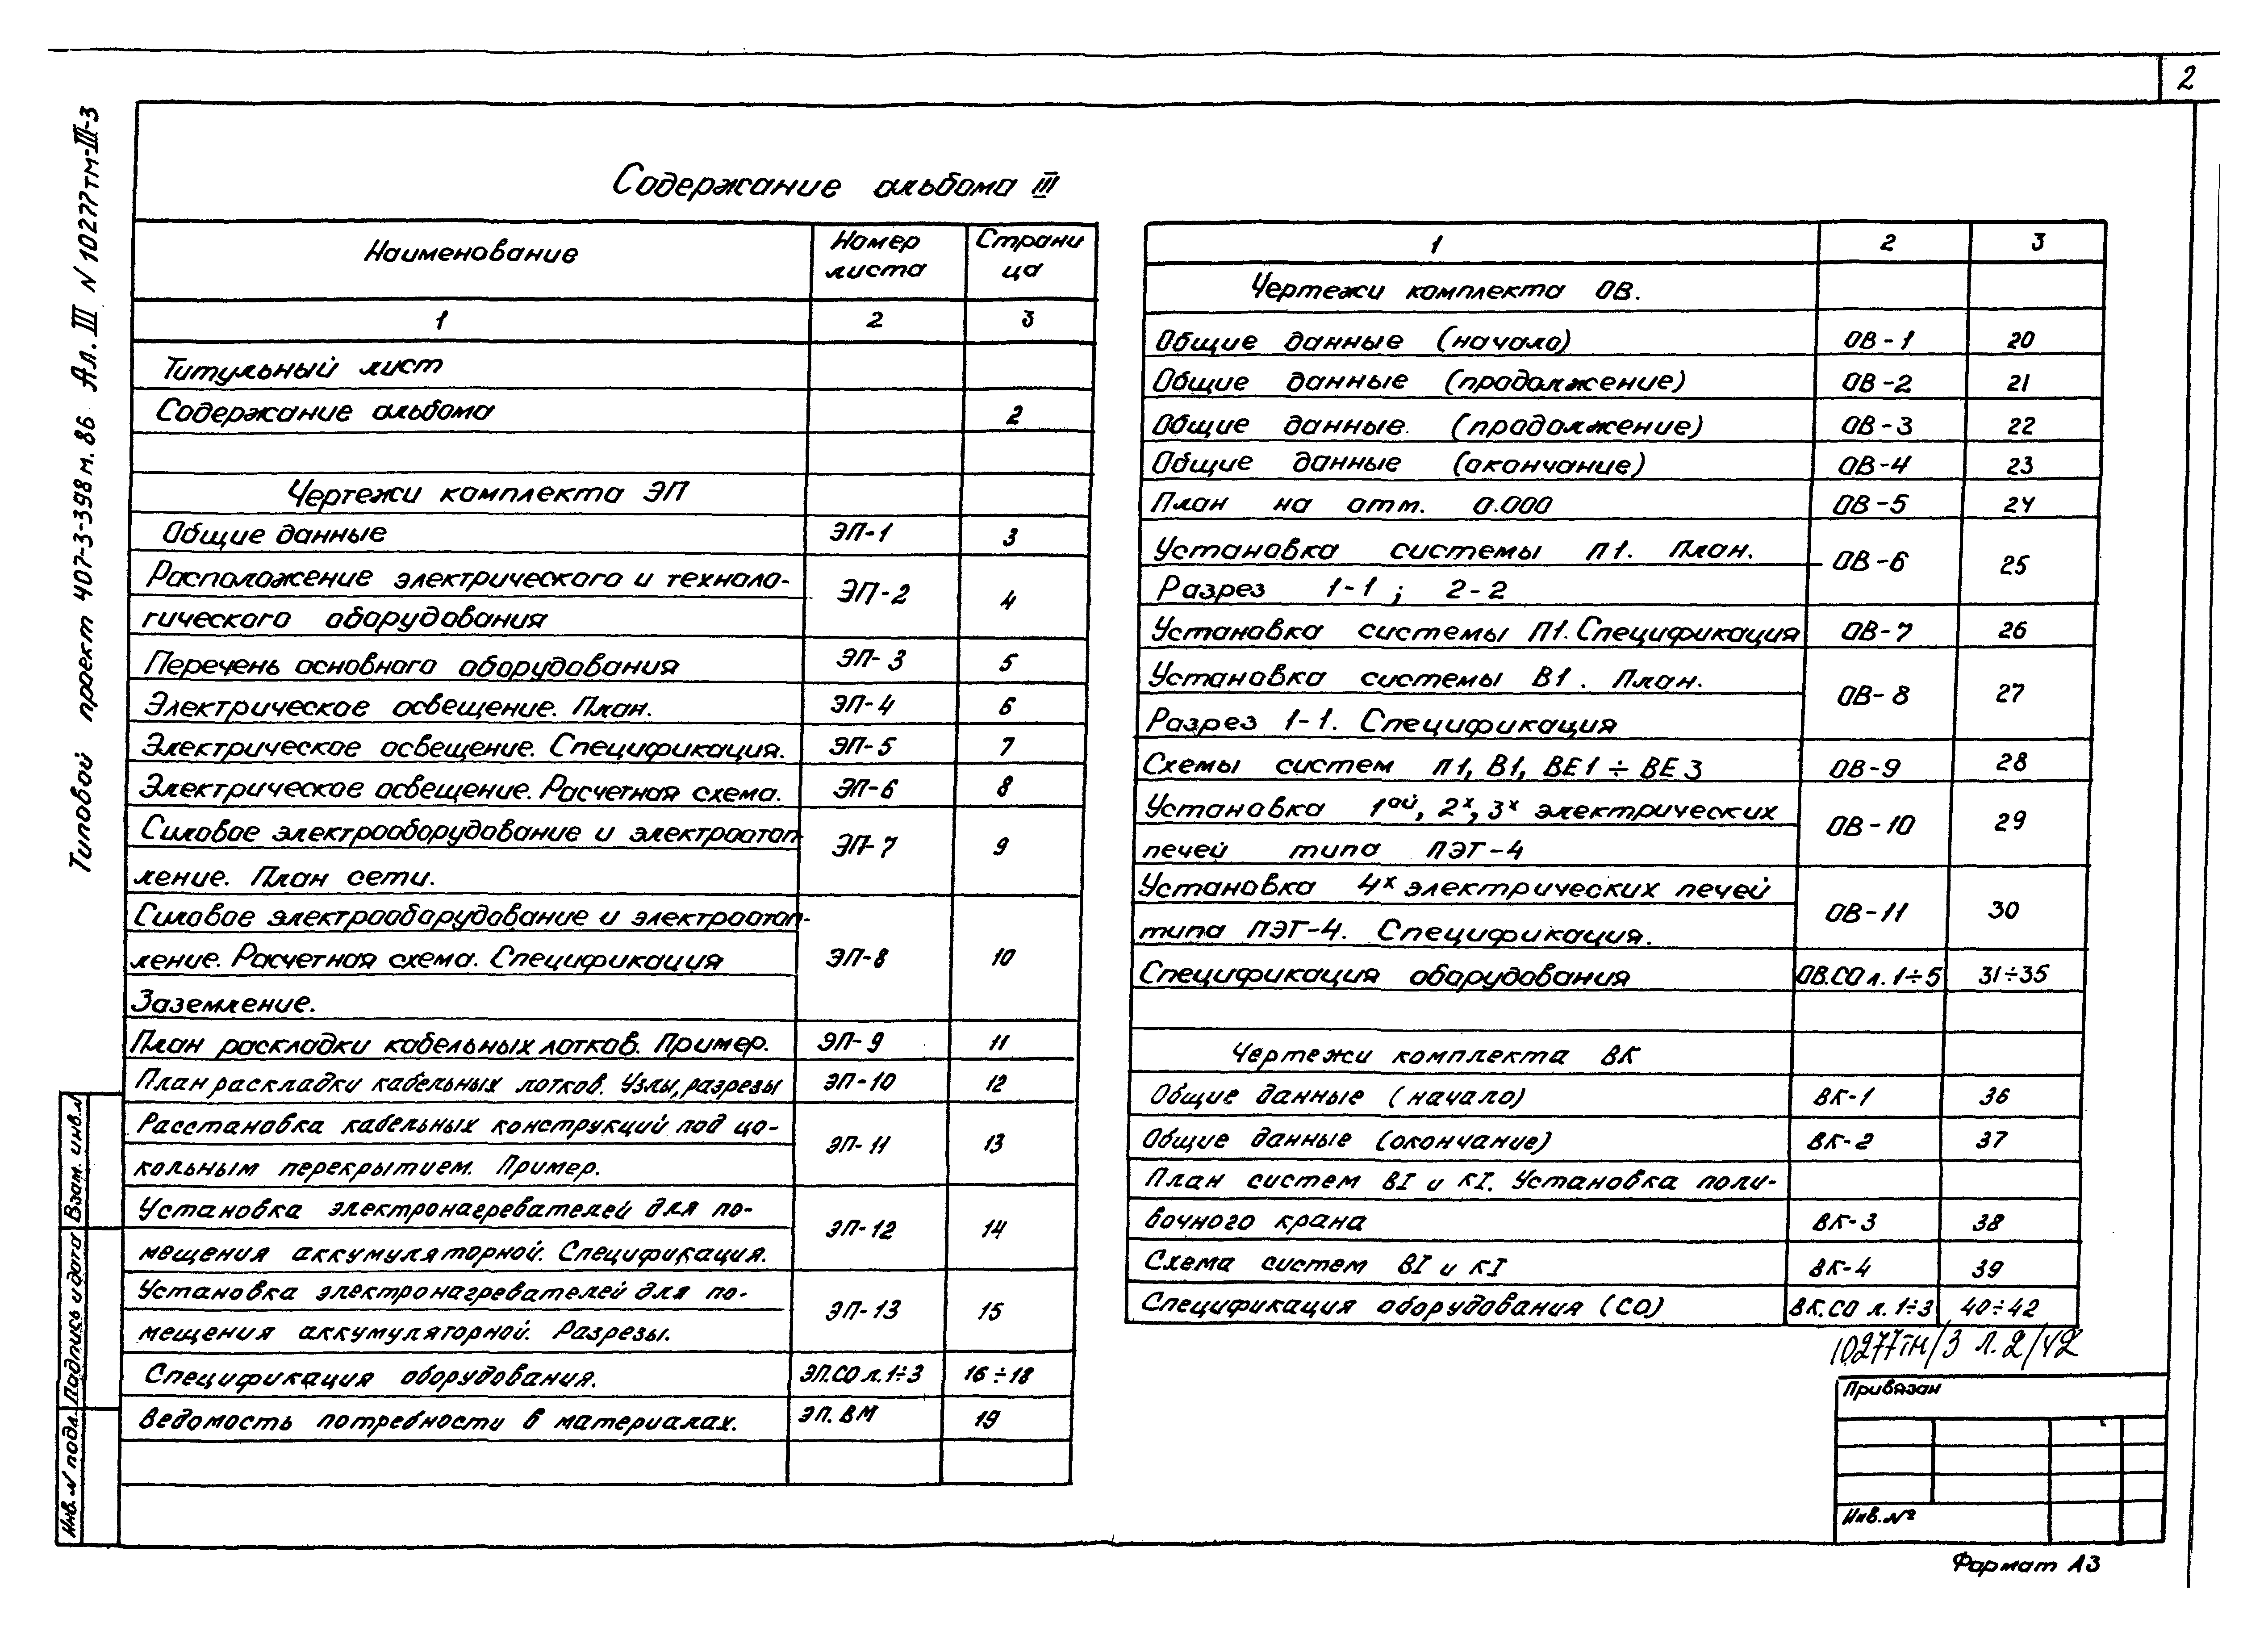 2
Типовой проект 407-3-398м.86 Ал. III N 10277тм-III-3
Содержание альбома III
Наименование Номер листа Страница
1 2 3
Титульный лист
Содержание альбома 2
Чертежи комплекта ЭП
Общие данные ЭП-1 3
Расположение электрического и техноло-
гического оборудования ЭП-2 4
Перечень основного оборудования ЭП-3 5
Электрическое освещение. План. ЭП-4 6
Электрическое освещение. Спецификация. ЭП-5 7
Электрическое освещение. Расчетная схема. ЭП-6 8
Силовое электрооборудование и электроотоп-
ление. План сети. ЭП-7 9
Силовое электрооборудование и электроотоп-
ление. Расчетная схема. Спецификация ЭП-8 10
Заземление.
План раскладки кабельных лотков. Пример. ЭП-9 11
План раскладки кабельных лотков. Узлы, разрезы ЭП-10 12
Расстановка кабельных конструкций под цо-
кольным перекрытием. Пример. ЭП-11 13
Установка электронагревателей для по-
мещения аккумуляторной. Спецификация. ЭП-12 14
Установка электронагревателей для по-
мещения аккумуляторной. Разрезы. ЭП-13 15
Спецификация оборудования. ЭП.СО л.1÷3 16÷18
Ведомость потребности в материалах. ЭП.ВМ 19
1 2 3
Чертежи комплекта ОВ.
Общие данные (начало) ОВ-1 20
Общие данные (продолжение) ОВ-2 21
Общие данные. (продолжение) ОВ-3 22
Общие данные (окончание) ОВ-4 23
План на отм. 0.000 ОВ-5 24
Установка системы П1. План.
Разрез 1-1; 2-2 ОВ-6 25
Установка системы П1. Спецификация ОВ-7 26
Установка системы В1. План.
Разрез 1-1. Спецификация ОВ-8 27
Схемы систем П1, В1, ВЕ1÷ВЕ3 ОВ-9 28
Установка 1ой, 2х, 3х электрических
печей типа ПЭТ-4 ОВ-10 29
Установка 4х электрических печей
типа ПЭТ-4. Спецификация. ОВ-11 30
Спецификация оборудования ОВ.СО л.1÷5 31÷35
Чертежи комплекта ВК
Общие данные (начало) ВК-1 36
Общие данные (окончание) ВК-2 37
План систем ВI и КI. Установка поли-
вочного крана ВК-3 38
Схема систем ВI и КI ВК-4 39
Спецификация оборудования (СО) ВК.СО л.1÷3 40÷42
10277тм/3 л.2/42
Привязан
Инв.№
Формат А3
Инв. N подл. Подпись и дата Взам. инв. N